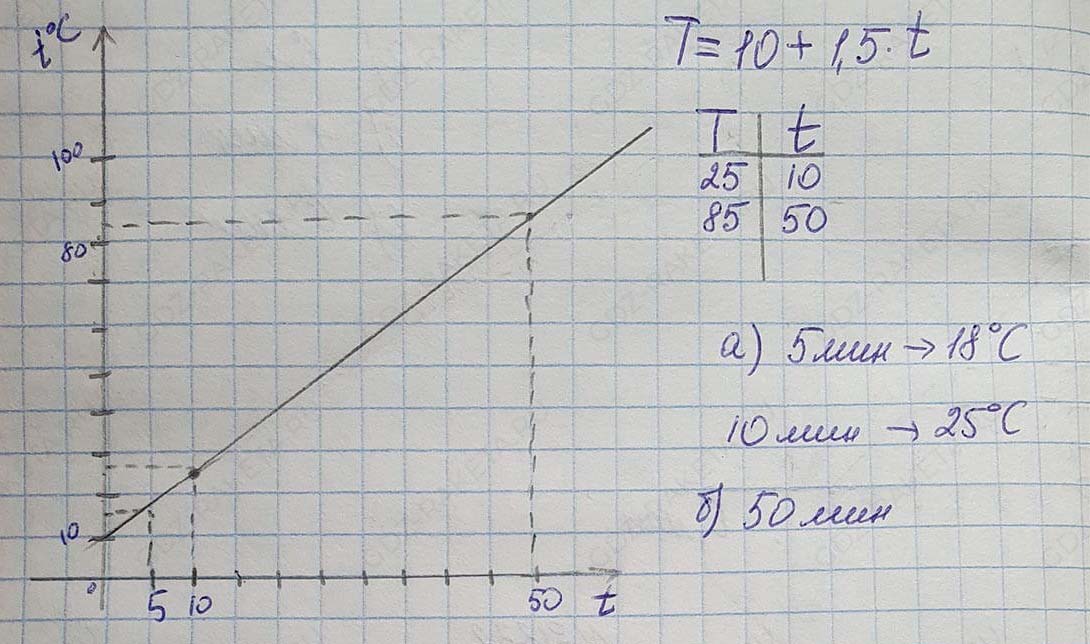 t°C
100
80
10
0
5 10 50 t
T = 10 + 1,5 · t
T t
25 10
85 50
а) 5 мин → 18°C
10 мин → 25°C
б) 50 мин